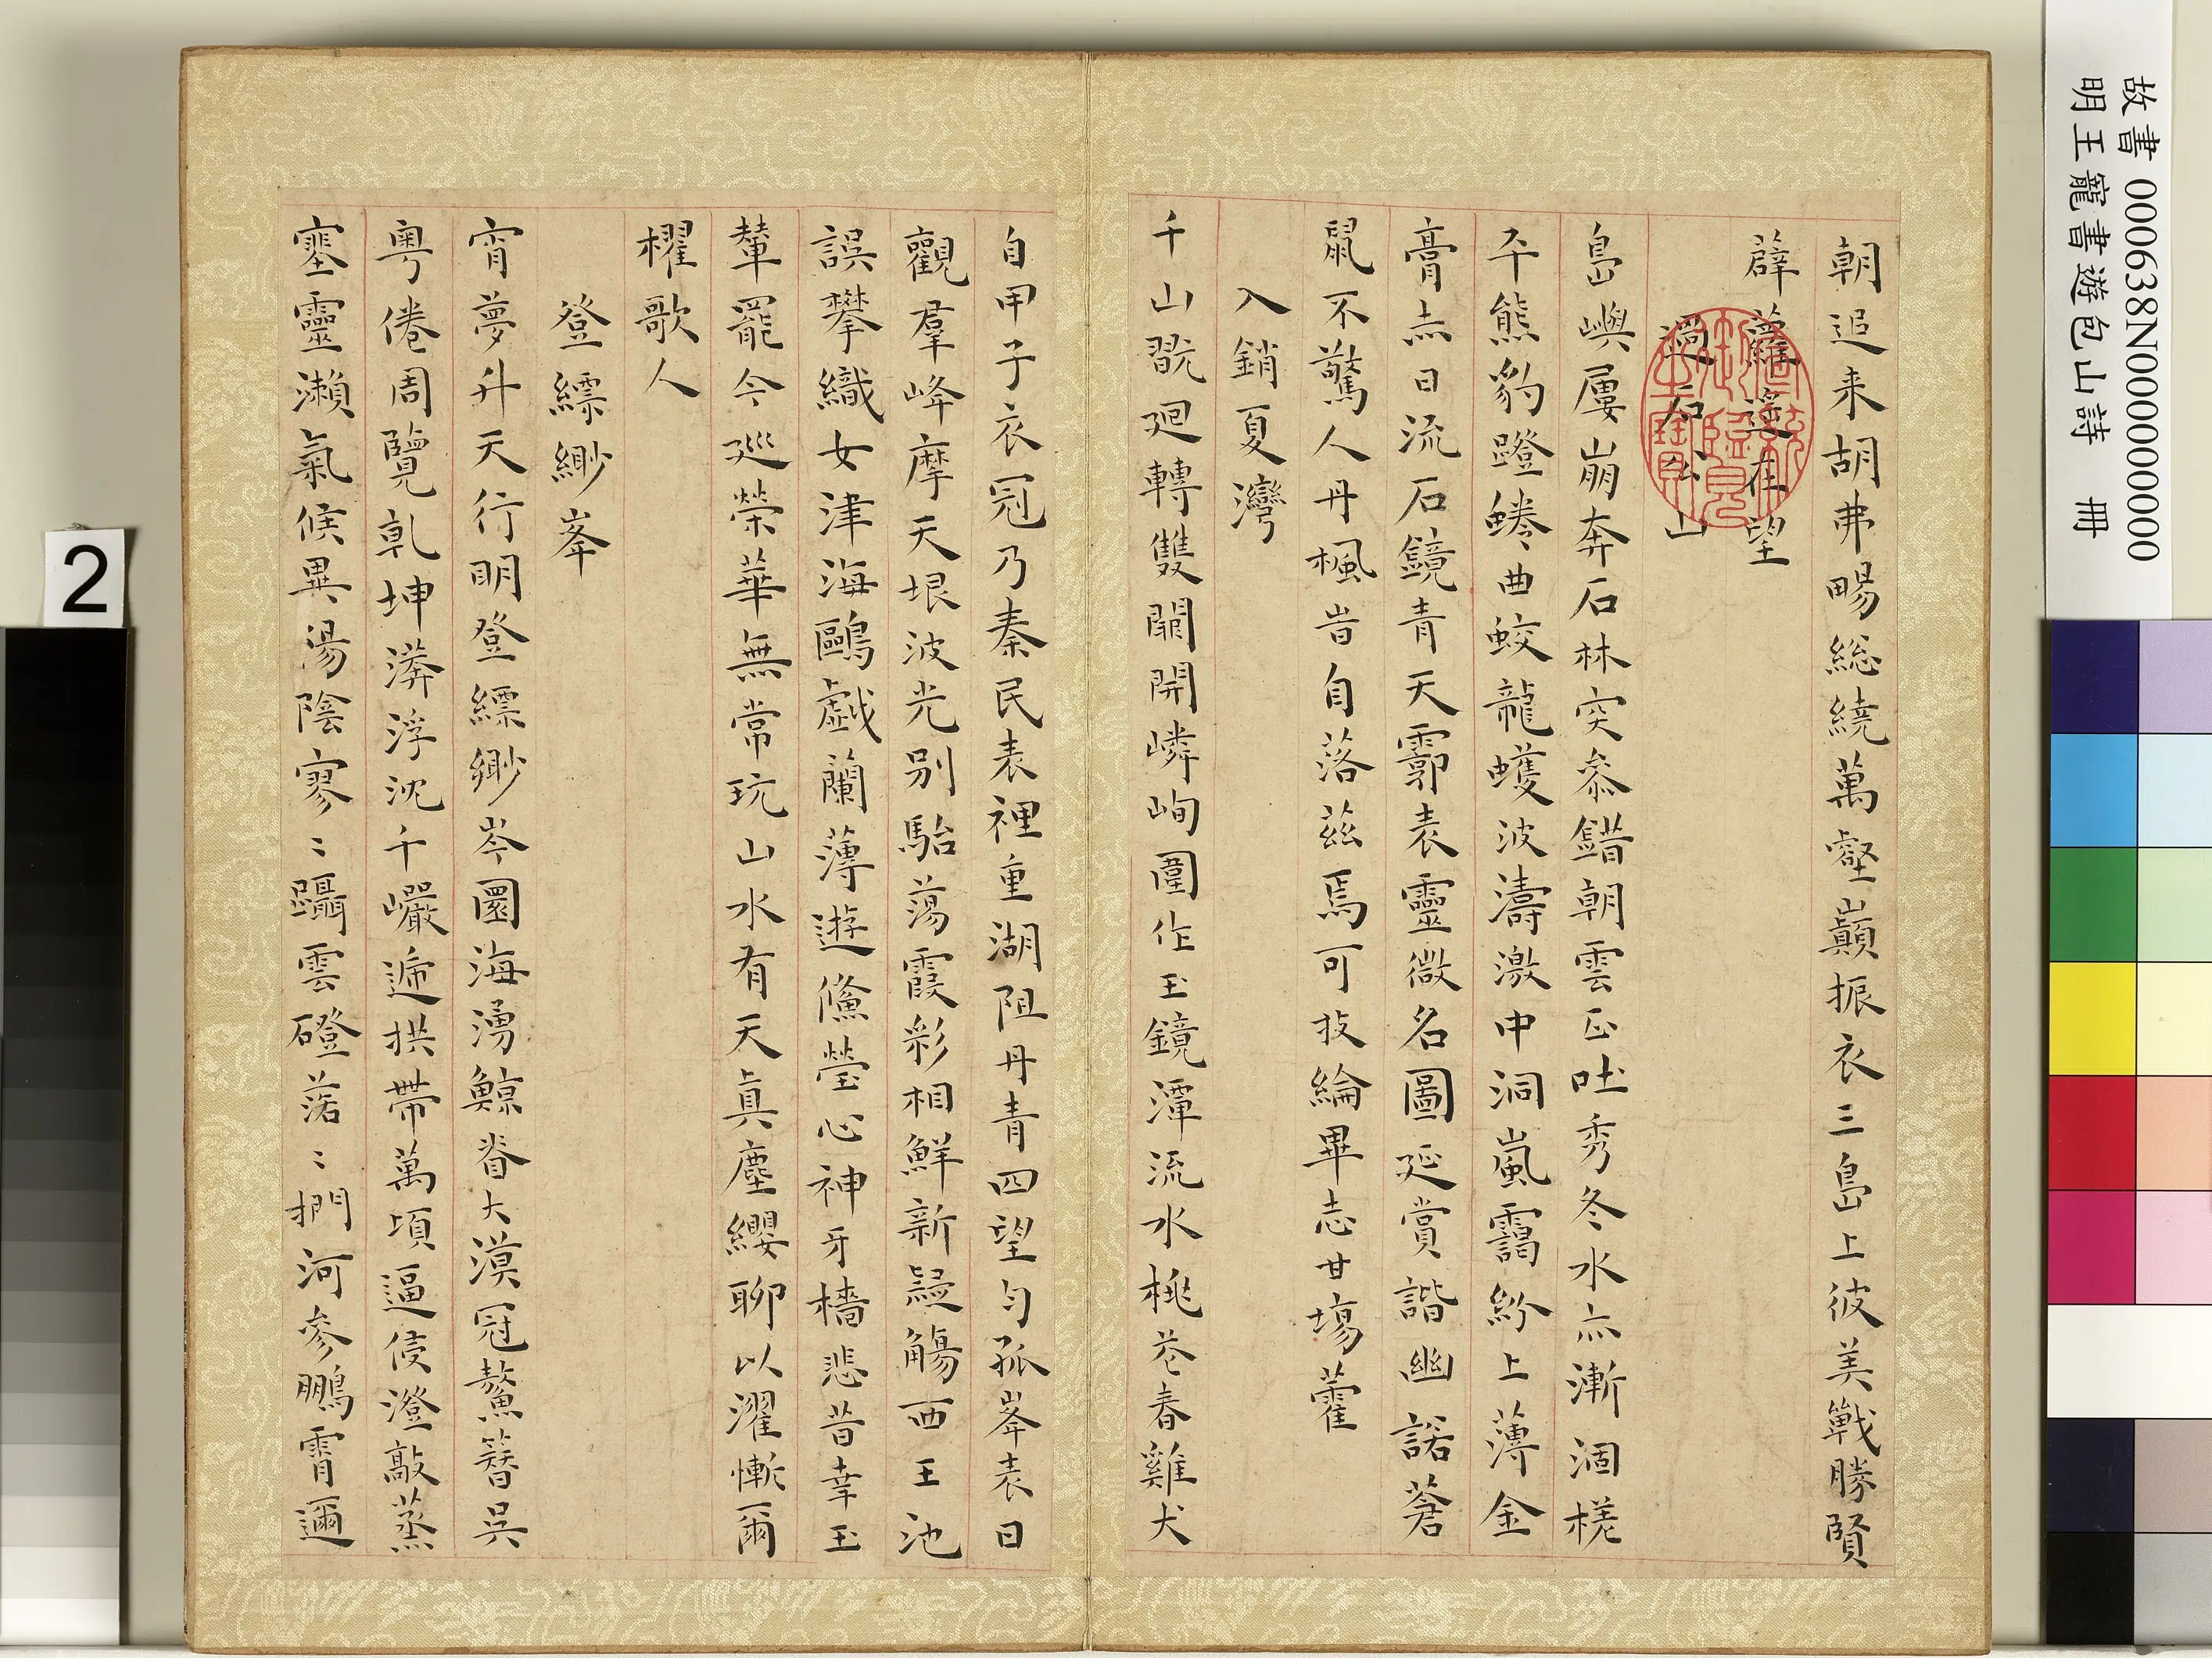 故書000638N000000000
明王寵書遊包山詩 冊
朝追来胡弗暢総繞萬壑巔振衣三島上彼美戰勝賢
薜蘿遥在望
過石公山
島嶼屢崩奔石林突叅錯朝雲正吐秀冬水亦漸涸槎
平熊豹蹬蜷曲蛟龍蠖波濤激中洞嵐靄紛上薄金
膏赤日流石鏡青天霩表靈微名圖延賞諧幽諾蒼
鼠不驚人丹楓旹自落茲焉可投綸畢志甘場藿
入銷夏灣
千山翫廻轉雙闕開嶙峋圍作玉鏡潭流水桃花春雞犬
自甲子衣冠乃秦民表裡重湖阻丹青四望勻孤峯表日
觀羣峰摩天垠波光別駘蕩霞彩相鮮新疑觴西王池
誤攀織女津海鷗戯蘭薄遊儵瑩心神牙檣悲昔幸玉
輦罷今巡榮華無常玩山水有天真塵纓聊以濯慚爾
櫂歌人
登縹緲峯
宵夢升天行明登縹緲岑圜海湧鯨脊大漠冠鰲簪吳
粵倦周覽乹坤漭浮沈千巘遞拱帶萬頃逼侵澄敲蒸
塞靈瀨氣候異湯陰寥〻躡雲磴落〻捫河參鵬霄邇
2